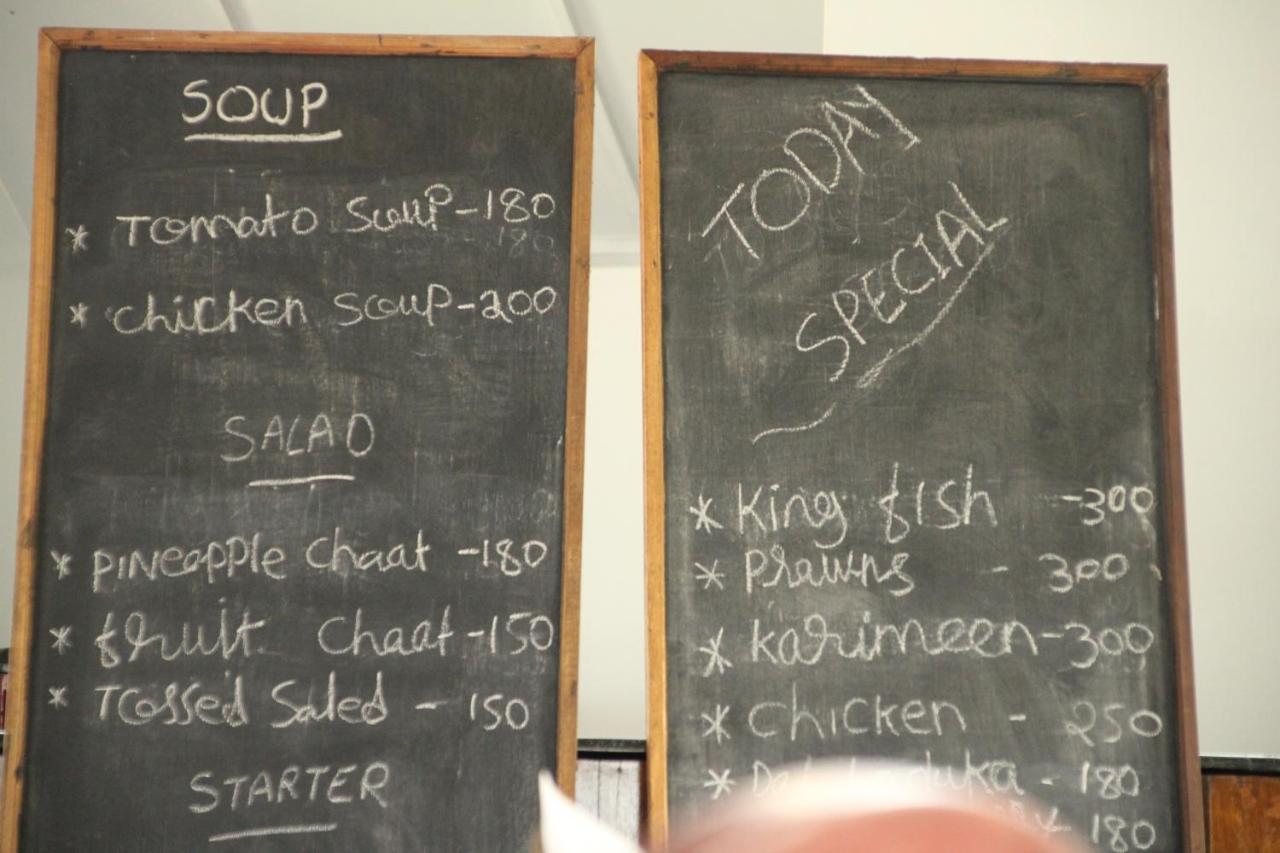 SOUP
* Tomato Soup -180
180
* Chicken Soup -200
SALAD
* PINEAPPle Chaat -180
* fruit Chaat -150
* Tossed Saled - 150
STARTER
TODAY
SPECIAL
* King fish -300
* Prawns - 300
* Karimeen -300
* Chicken - 250
* - 180
180